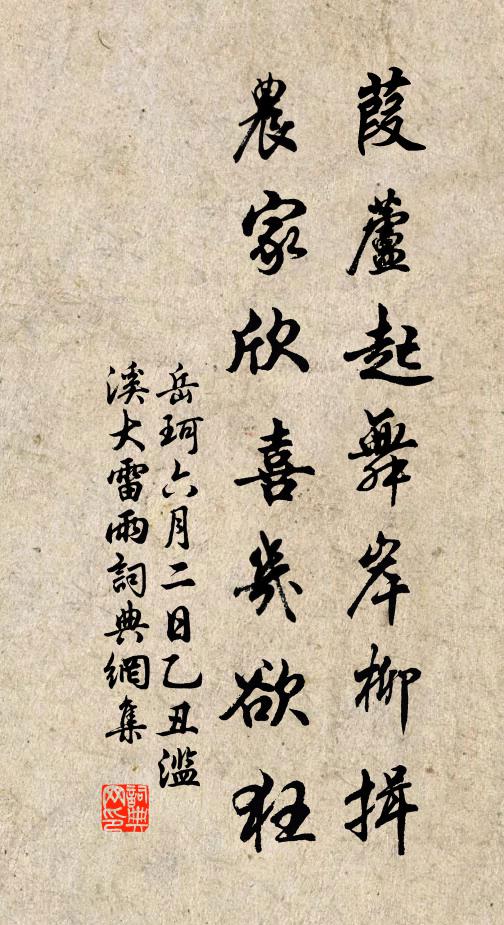 葭蘆起舞岸柳揖
農家欣喜幾欲狂
岳珂六月二日乙丑濫
溪大雷雨詞典網集
詞典網印